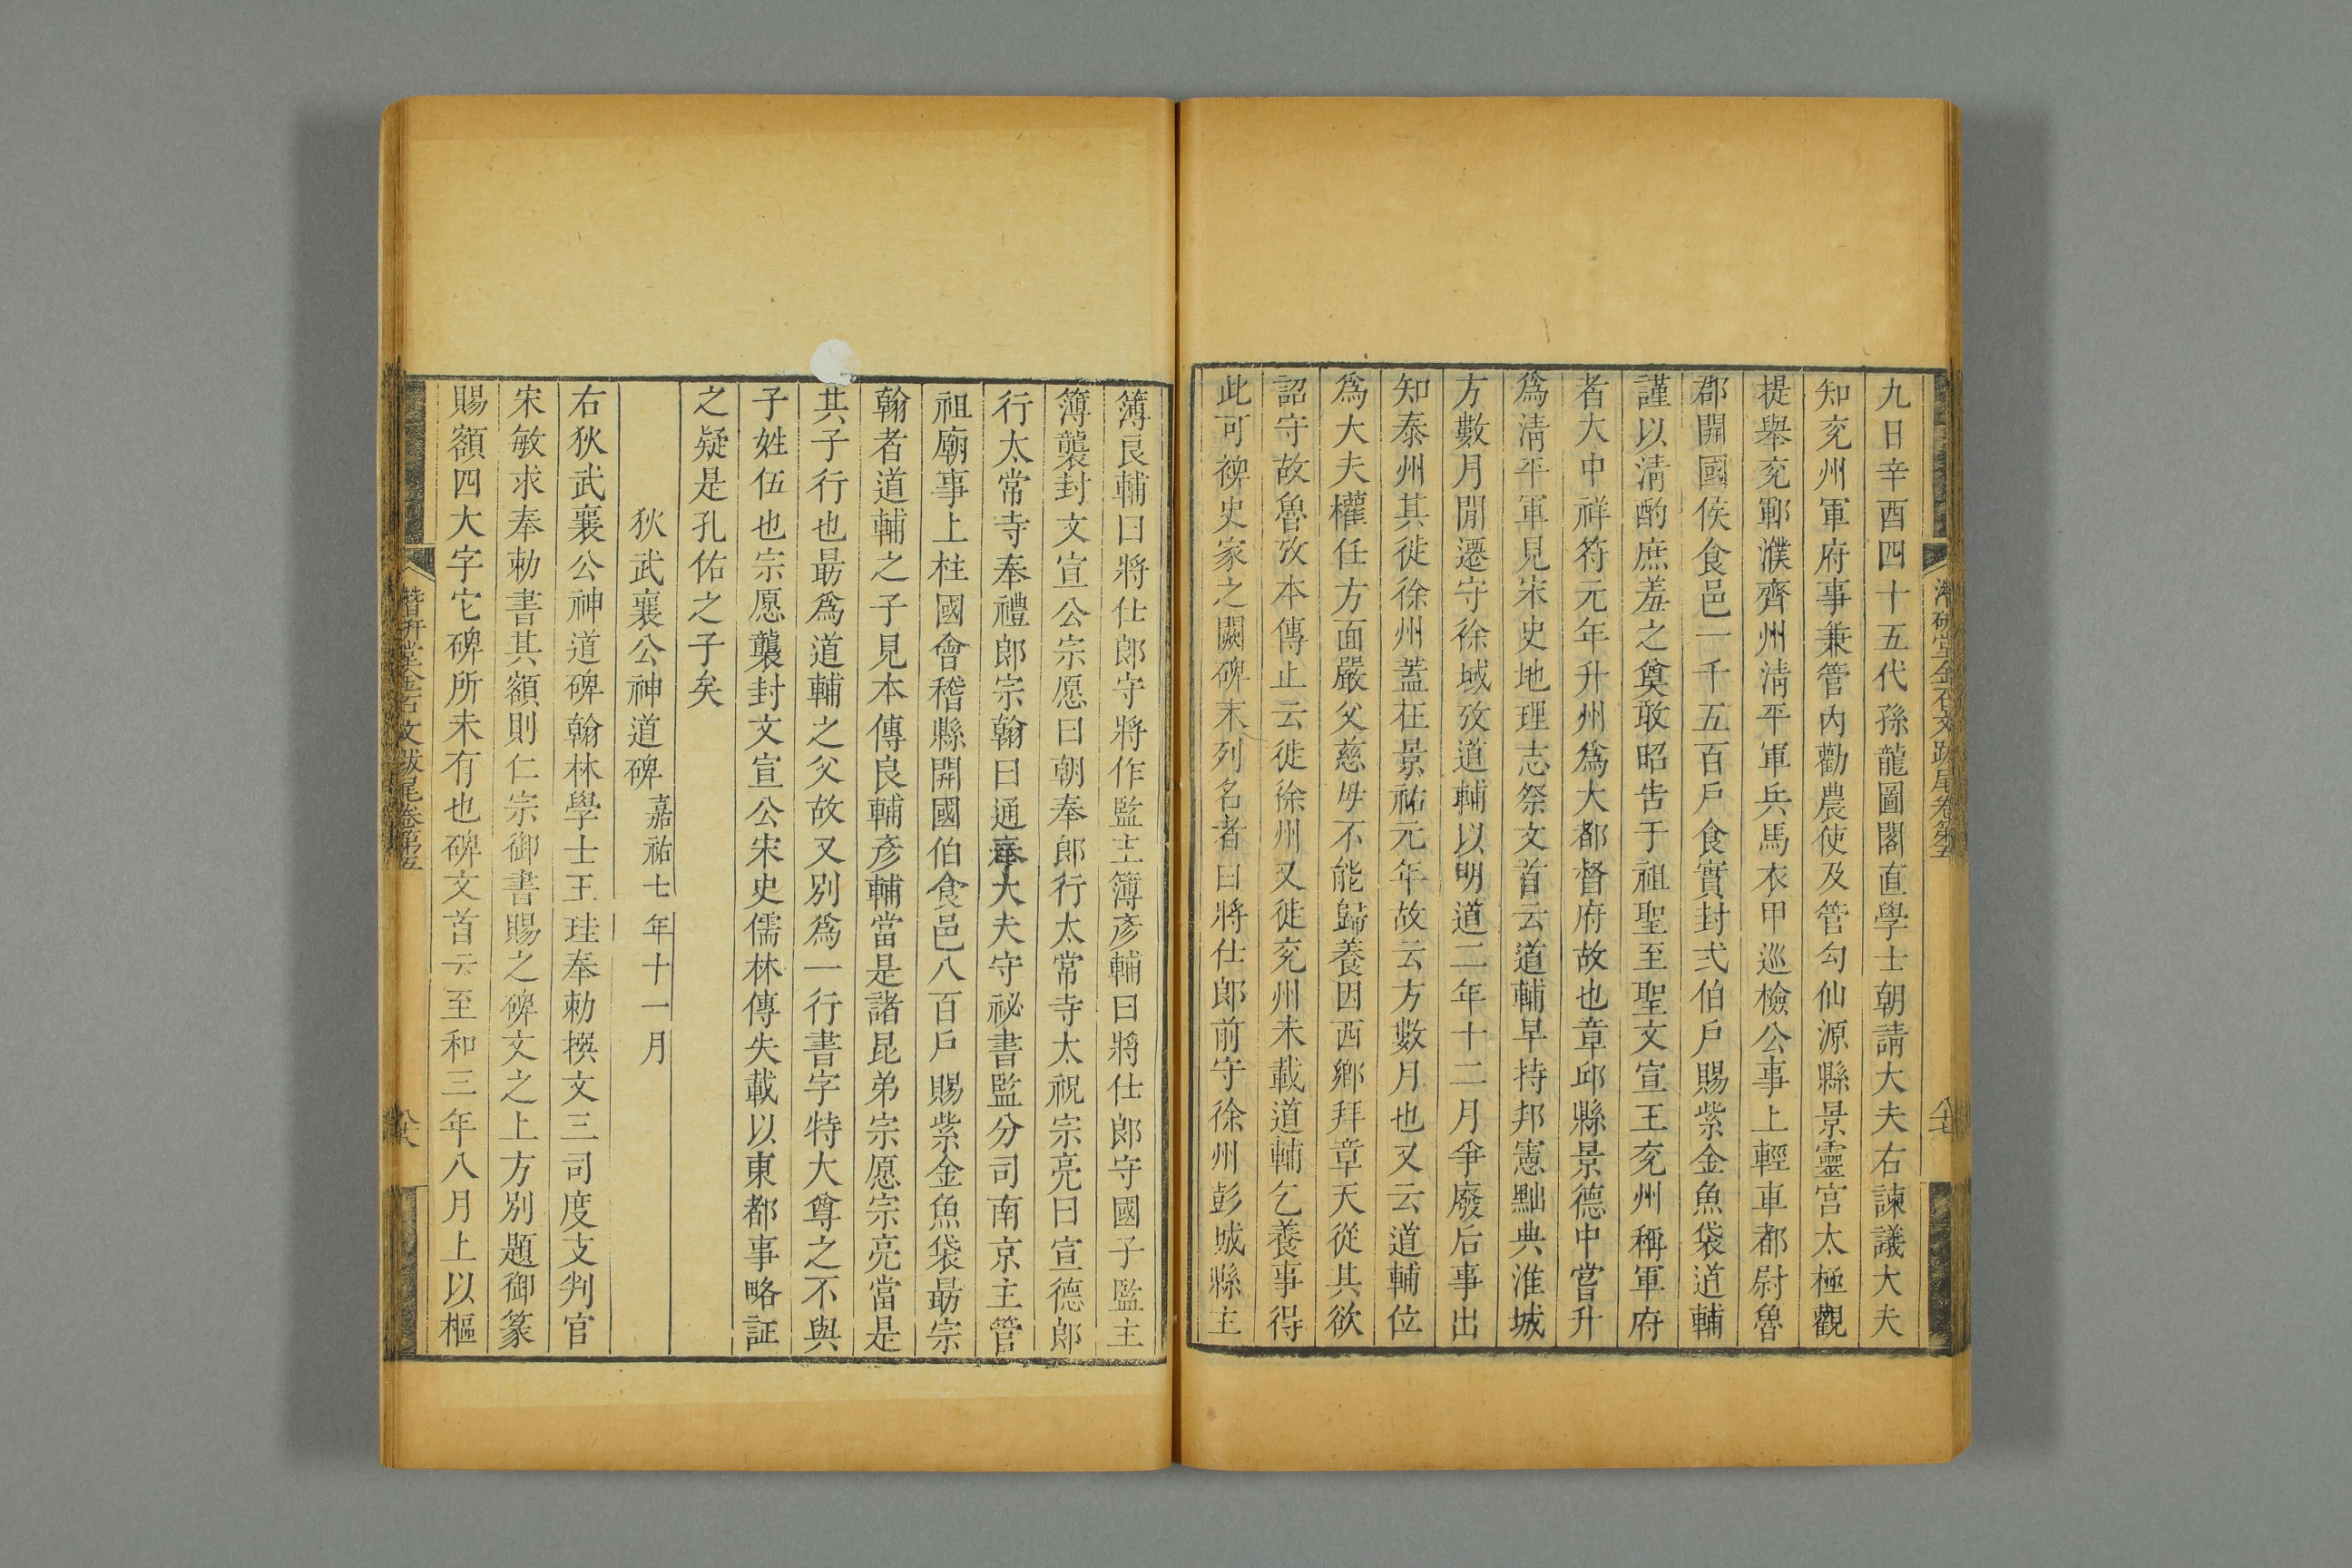 九日辛酉四十五代孫龍圖閣直學士朝請大夫右諫議大夫
知兖州軍府事兼管內勸農使及管勾仙源縣景靈宫太極觀
提舉兖鄆濮齊州淸平軍兵馬衣甲巡檢公事上輕車都尉魯
郡開國侯食邑一千五百戶食實封弍伯戶賜紫金魚袋道輔
謹以淸酌庶羞之奠敢昭告于祖聖至聖文宣王兖州稱軍府
者大中祥符元年升州爲大都督府故也章邱縣景德中嘗升
爲淸平軍見宋史地理志祭文首云道輔早持邦憲黜典淮城
方數月閒遷守徐域攷道輔以明道二年十二月爭廢后事出
知泰州其徙徐州蓋在景祐元年故云方數月也又云道輔位
爲大夫權任方面嚴父慈母不能歸養因西鄉拜章天從其欲
詔守故魯攷本傳止云徙徐州又徙兖州未載道輔乞養事得
此可裨史家之闕碑末列名者曰將仕郎前守徐州彭城縣主
簿良輔曰將仕郎守將作監主簿彥輔曰將仕郎守國子監主
簿襲封文宣公宗愿曰朝奉郎行太常寺太祝宗亮曰宣德郎
行太常寺奉禮郎宗翰曰通奉大夫守祕書監分司南京主管
祖廟事上柱國會稽縣開國伯食邑八百戶賜紫金魚袋勗宗
翰者道輔之子見本傳良輔彥輔當是諸昆弟宗愿宗亮當是
其子行也勗爲道輔之父故又別爲一行書字特大尊之不與
子姓伍也宗愿襲封文宣公宋史儒林傳失載以東都事略証
之疑是孔佑之子矣
狄武襄公神道碑 嘉祐七年十一月
右狄武襄公神道碑翰林學士王珪奉勅撰文三司度支判官
宋敏求奉勅書其額則仁宗御書賜之碑文之上方別題御篆
賜額四大字它碑所未有也碑文首云至和三年八月上以樞
潛研堂金石文跋尾卷第五